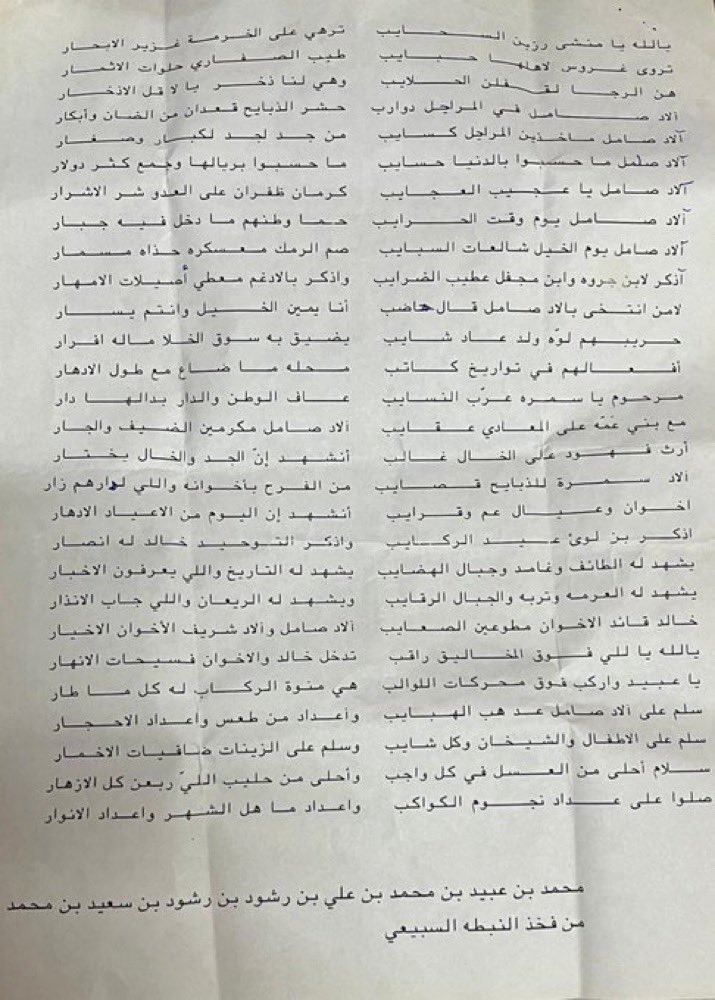 يالله يا منشى رزين السحايب ترهي على الخرمة غزير الابحار
تروى غروس لاهلها حبايب طيب الصفاري حلوات الاثمار
هن الرجا لقفلن الحلايب وهي لنا ذخر يا لا قل الاذخار
آلاد صامل في المراجل دوارب حشر الذبايح قعدان من الضان وأبكار
آلاد صامل ماخذين المراجل كسايب من جد لجد لكبار وصغار
آلاد صامل ما حسبوا بالدنيا حسايب ما حسبوا بريالها وجمع كثر دولار
آلاد صامل يا عجيب العجايب كرمان ظفران على العدو شر الاشرار
آلاد صامل يوم وقت الحرايب حما وطنهم ما دخل فيه جبار
آلاد صامل يوم الخيل شالعات السبايب صم الرمك معسكره حذاه مسمار
آذكر لابن جروه وابن مجفل عطيب الضرايب واذكر بالادغم معطي أصيلات الامهار
لامن انتخى بالاد صامل قال هاضب أنا يمين الخيل وانتم يسار
حريبهم لوّه ولد عاد شايب يضيق به سوق الخلا ماله افرار
أفعالهم في تواريخ كاتب محله ما ضاع مع طول الادهار
مرحوم يا سمره عزّب النسايب عاف الوطن والدار بدالها دار
مع بني عمّه على المعادي عقايب الاد صامل مكرمين الضيف والجار
أرث فهود على الخال غالب أنشهد إنّ الجد والخال يختار
الاد سمرة للذبايح قصايب من الفرح بأخوانه واللي لدارهم زار
اخوان وعيال عم وقرايب أنشهد إن اليوم من الاعياد الادهار
اذكر بن لوئ عبيد الركايب واذكر التوحيد خالد له انصار
يشهد له الطائف وغامد وجبال الهضايب يشهد له التاريخ واللي يعرفون الاخبار
يشهد له العرمه وتربه والجبال الرقايب ويشهد له الريعان واللي جاب الانذار
خالد قائد الاخوان مطوعين الصعايب آلاد صامل وآلاد شريف الأخوان الاخيار
يالله يا للي فوق المخاليق راقب تدخل خالد والاخوان فسيحات الانهار
يا عبيد واركب فوق محركات اللوالب هي منوة الركاب له كل ما طار
سلم على آلاد صامل عد هب الهبايب وأعداد من طعس واعداد الاحجار
سلم على الاطفال والشيخان وكل شايب وسلم على الزينات ضافيات الاخمار
سلام أحلى من العسل في كل واجب وأحلى من حليب الليّ ربعن كل الازهار
صلوا على عداد نجوم الكواكب واعداد ما هل الشهر واعداد الانوار
محمد بن عبيد بن محمد بن علي بن رشود بن رشود بن سعيد بن محمد
من فخذ النبطه السبيعي